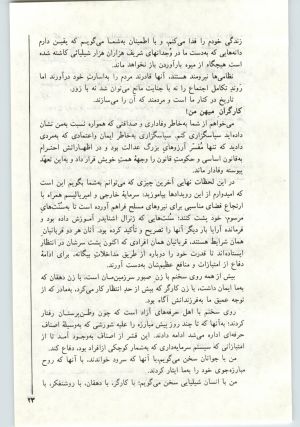 زندگی خودم را فدا می‌کنم. و با اطمینان به‌شما می‌گویم که یقین دارم
دانه‌هایی که به‌دست ما در وُجدانهای شریف هزاران هزار شیلیائی کاشته شده
است هیچگاه از میوه بارآوردن باز نخواهد ماند.
نظامی‌ها نیرومند هستند، آنها قادرند مردم را به‌اسارت خود درآورند اما
روَند تکامل اجتماع را نه با جنایت مانع می‌توان شد نه با زور.
تاریخ در کنار ما است و مردمند که آن را می‌سازند.
کارگران میهن من!
می‌خواهم از شما به‌خاطر وفاداری و صداقتی که همواره نسبت به‌من نشان
داده‌اید سپاسگزاری کنم. سپاسگزاری به‌خاطر ایمان واعتمادی که به‌مردی
دادید که تنها مُفسّر آرزوهای بزرگ عدالت بود و در اظهاراتش احترام
به‌قانون اساسی و حکومتِ قانون را وجههٔ همتِ خویش قرار داد و به‌این تعهّد
پیوسته وفادار ماند.
در این لحظات نهایی آخرین چیزی که می‌توانم به‌شما بگویم این است
که امیدوارم از این رویدادها بیاموزید: سرمایهٔ خارجی و امپریالیسم همراه با
ارتجاع فضای مناسبی برای نیروهای مسلح فراهم آورده است تا به‌سنّت‌های
مرسوم خود پشت کنند؛ سنّت‌هایی که ژنرال اشنایدر آموزش داده بود و
فرمانده آرایا بار دیگر آنها را تصریح و تأکید کرده بود. آنان هر دو قربانیان
همان شرایط هستند. قربانیان همان افرادی که اکنون پشت سرشان در انتظار
ایستاده‌اند تا قدرت خود را دوباره از طریق مداخلات بیگانه، برای ادامهٔ
دفاع از امتیازات و منافع عظیم‌شان به‌دست آورند.
بیش از همه روی سخنم با زن صبور سرزمین‌مان است: با زن دهقان که
به‌ما ایمان داشت، با زن کارگر که بیش از حد انتظار کار می‌کرد، به‌مادر که از
توجه عمیق ما به‌فرزندانش آگاه بود.
روی سخنم با اهل حرفه‌های آزاد است که چون وطن‌پرستان رفتار
کردند؛ به‌آنها که تا چند روز پیش مبارزه را علیه شورشی که به‌وسیلهٔ اصناف
حرفه‌ای اداره می‌شد ادامه دادند. این قشر از اصناف به‌وجود آمد تا از
امتیازاتی که سیستم سرمایه‌داری به‌شمار کوچکی ازافراد بود، دفاع کند.
من با جوانان سخن می‌گویم، با آنها که سرود خواندند. با آنها که روح
مبارزه‌جوی خود را به‌ما ایثار کردند.
من با انسان شیلیایی سخن می‌گویم: با کارگر، با دهقان، با روشنفکر، با
۲۳